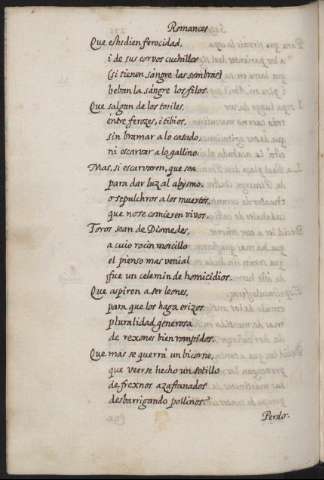 Romances
Que estudien ferocidad,
i de sus corvos cuchillos
(si tienen sangre las sombras)
beban la sangre los filos.
Que salgan de los toriles,
entre ferozes, i tibios,
sin bramar a lo casado,
ni escarvar a lo gallino.
Mas, si escarvaren, que sea
para dar luz al abysmo,
o sepulchros a los muertos,
que no se comieren vivos.
Toros sean de Diomedes,
a cuio rocin morcillo
el pienso mas venial
fue un celemin de homicidios.
Que aspiren a ser leones,
para que los haga erizos
pluralidad generosa
de rexones bien rompidos.
Que mas se querrà un bicorne,
que veerse hecho un sotillo
de frexnos azafranados
desbarrigando pollinos?
Perdo-